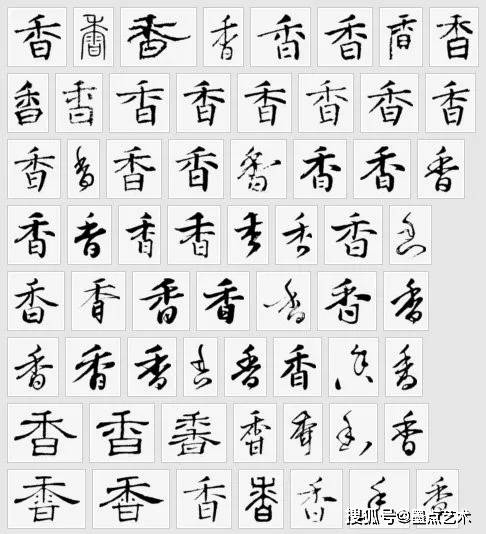 香香香香香香香香
香香香香香香香香
香香香香香香香香
香香香香香香香香
香香香香香香香
香香香香香香香香
香香香香香香香
香香香香香香香
搜狐号@墨点艺术